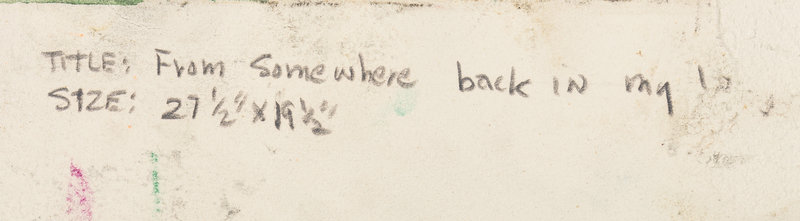 TITLE: From Somewhere back IN my
SIZE: 27 1/2" x 19 1/2"